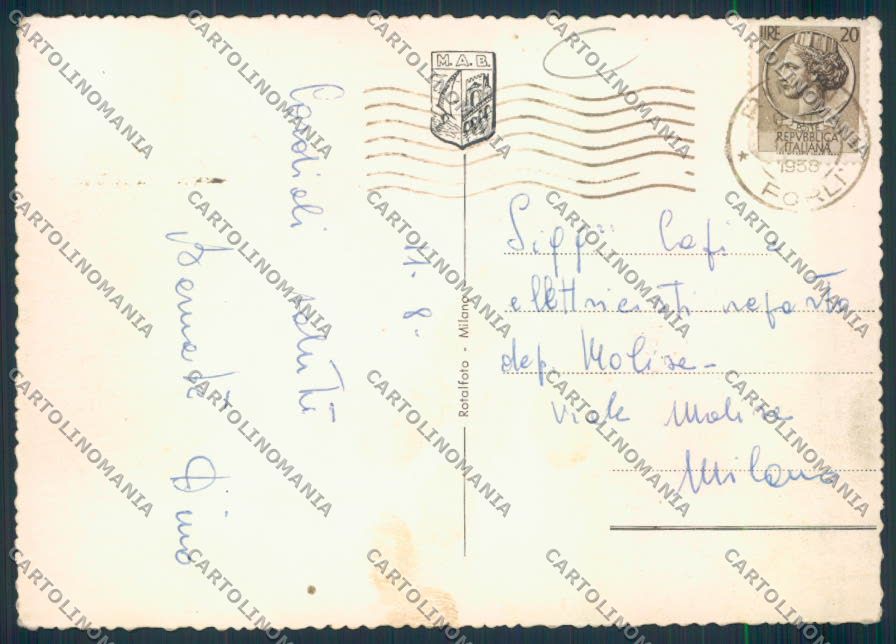 M.A.B.
LIRE 20
REPVBBLICA
ITALIANA
1958
FORLI
Cordiali saluti
11.8.
Dino
Rotalfoto - Milano
Sigg.ri Capi e
elettricisti reparto
dep. Molise -
viale Molise
Milano
CARTOLINOMANIA